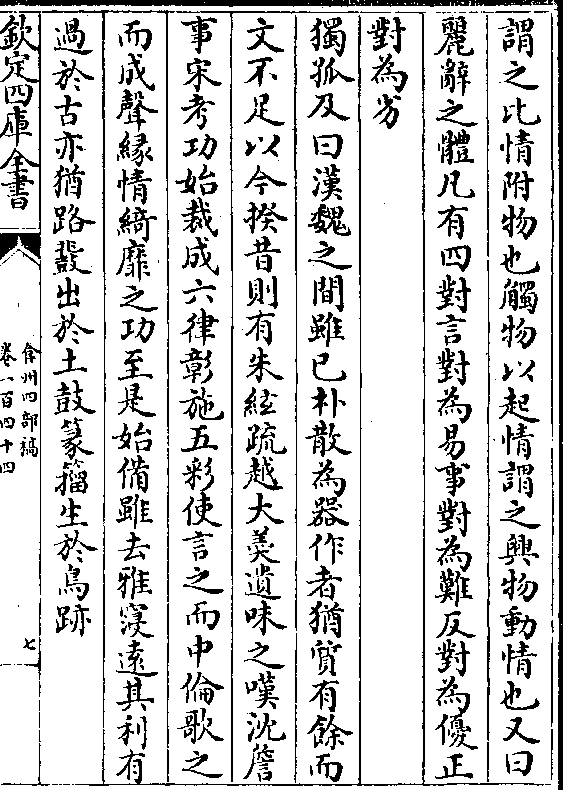 謂之比情附物也觸物以起情謂之興物動情也又曰
麗辭之體凡有四對言對為易事對為難反對為優正
對為劣
獨孤及曰漢魏之間雖已朴散為器作者猶質有餘而
文不足以今揆昔則有朱絃疏越大羮遺味之嘆沈詹
事宋考功始裁成六律彰施五彩使言之而中倫歌之
而成聲緣情綺靡之功至是始備雖去雅寖遠其利有
過於古亦猶路鼗出於土鼓篆籀生於鳥跡
欽定四庫全書
弇州四部稿
卷一百四十四
七